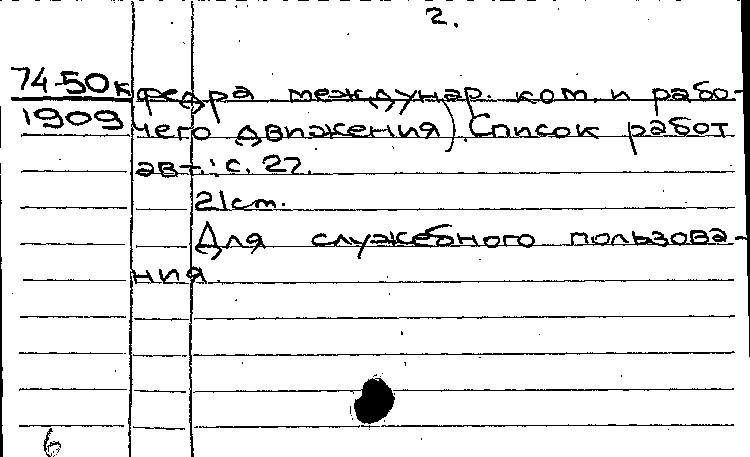 2.
74-50к федра междунар. ком. и рабо-
1909 чего движения). Список работ
авт.: с. 27.
21 cm.
Для служебного пользова-
ния.
6